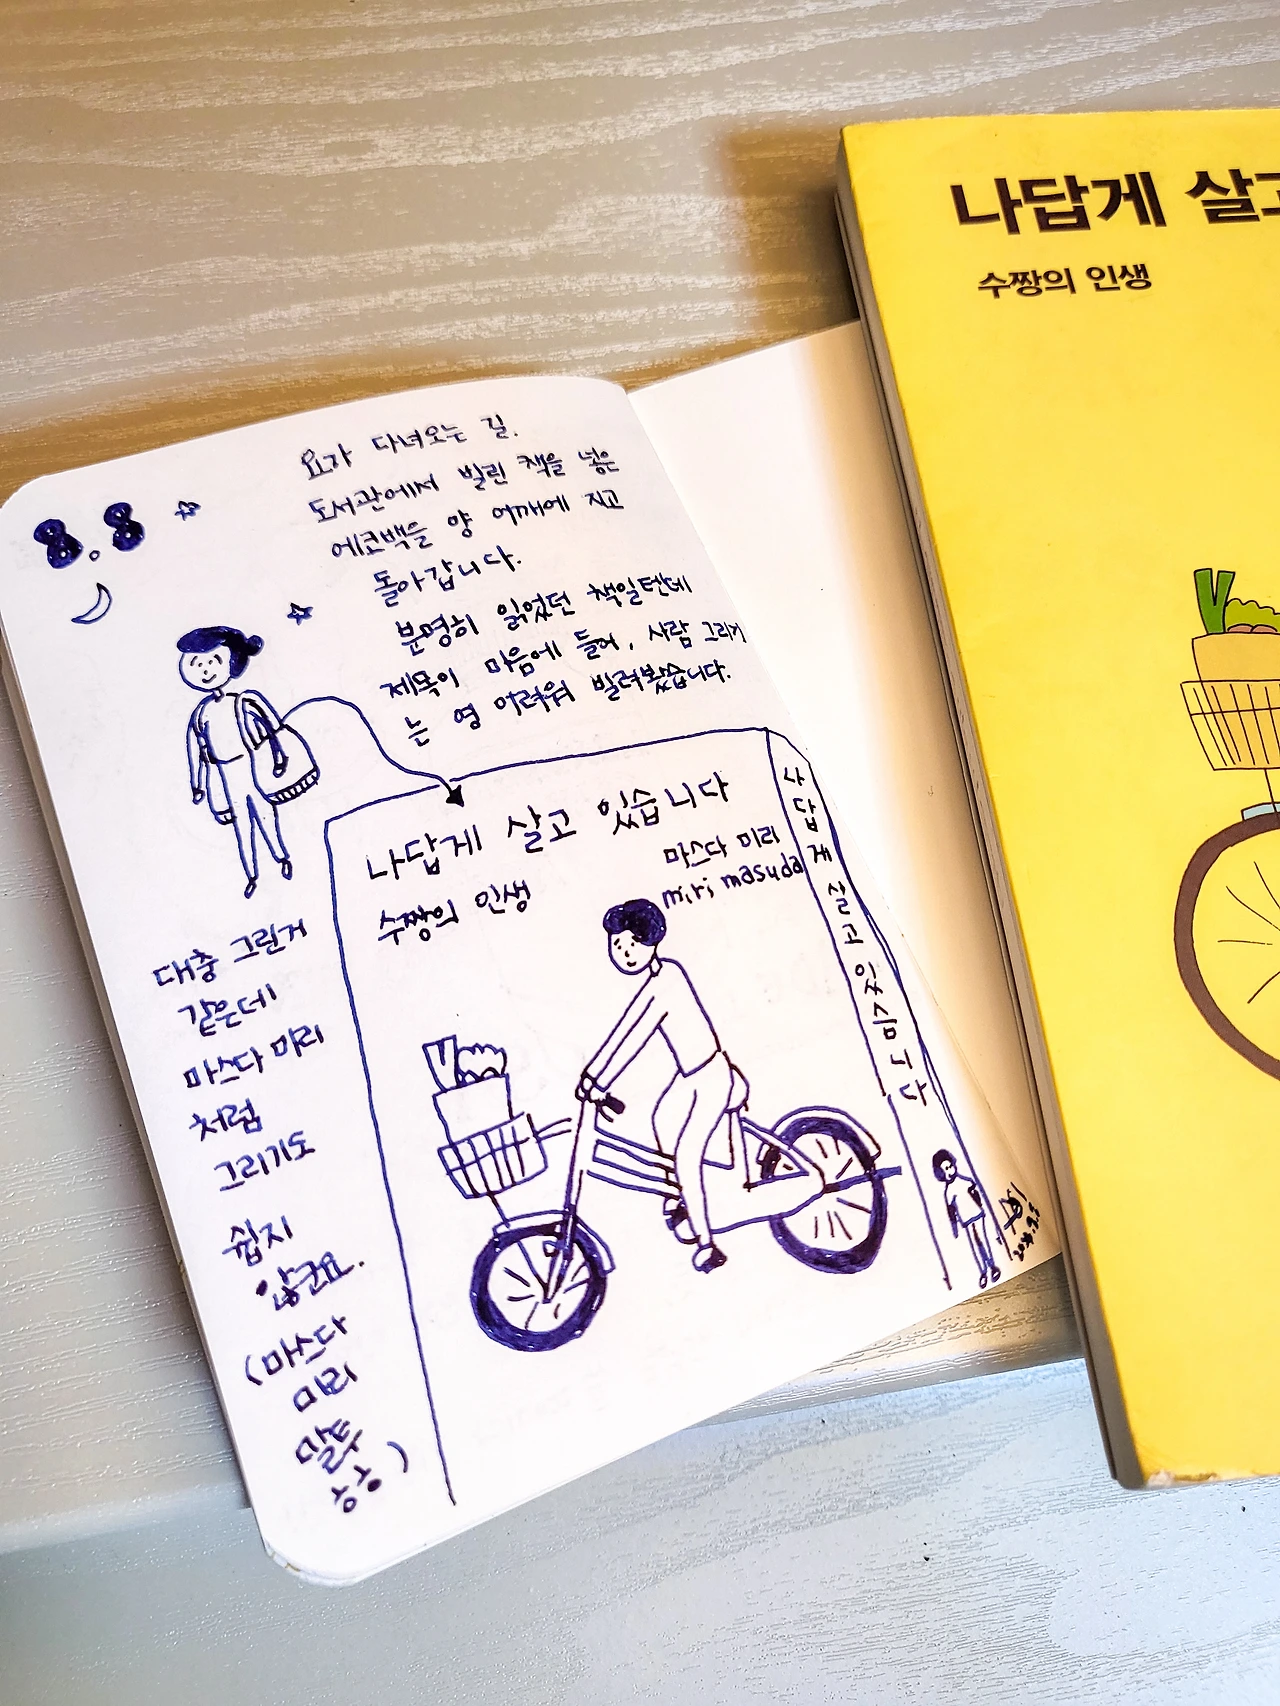 나답게 살고
수짱의 인생
8.8
요가 다녀오는 길.
도서관에서 빌린 책을 넣은
에코백을 양 어깨에 지고
돌아갑니다.
분명히 읽었던 책일텐데
제목이 마음에 들어, 사람 그리기
는 영 어려워 빌려봤습니다.
나답게 살고 있습니다
수짱의 인생
마스다 미리
miri masuda
나답게 살고 있습니다
대충 그린거
같은데
마스다 미리
처럼
그리기도
쉽지
않군요.
(마스다
미리
말투
ㅎㅎ)